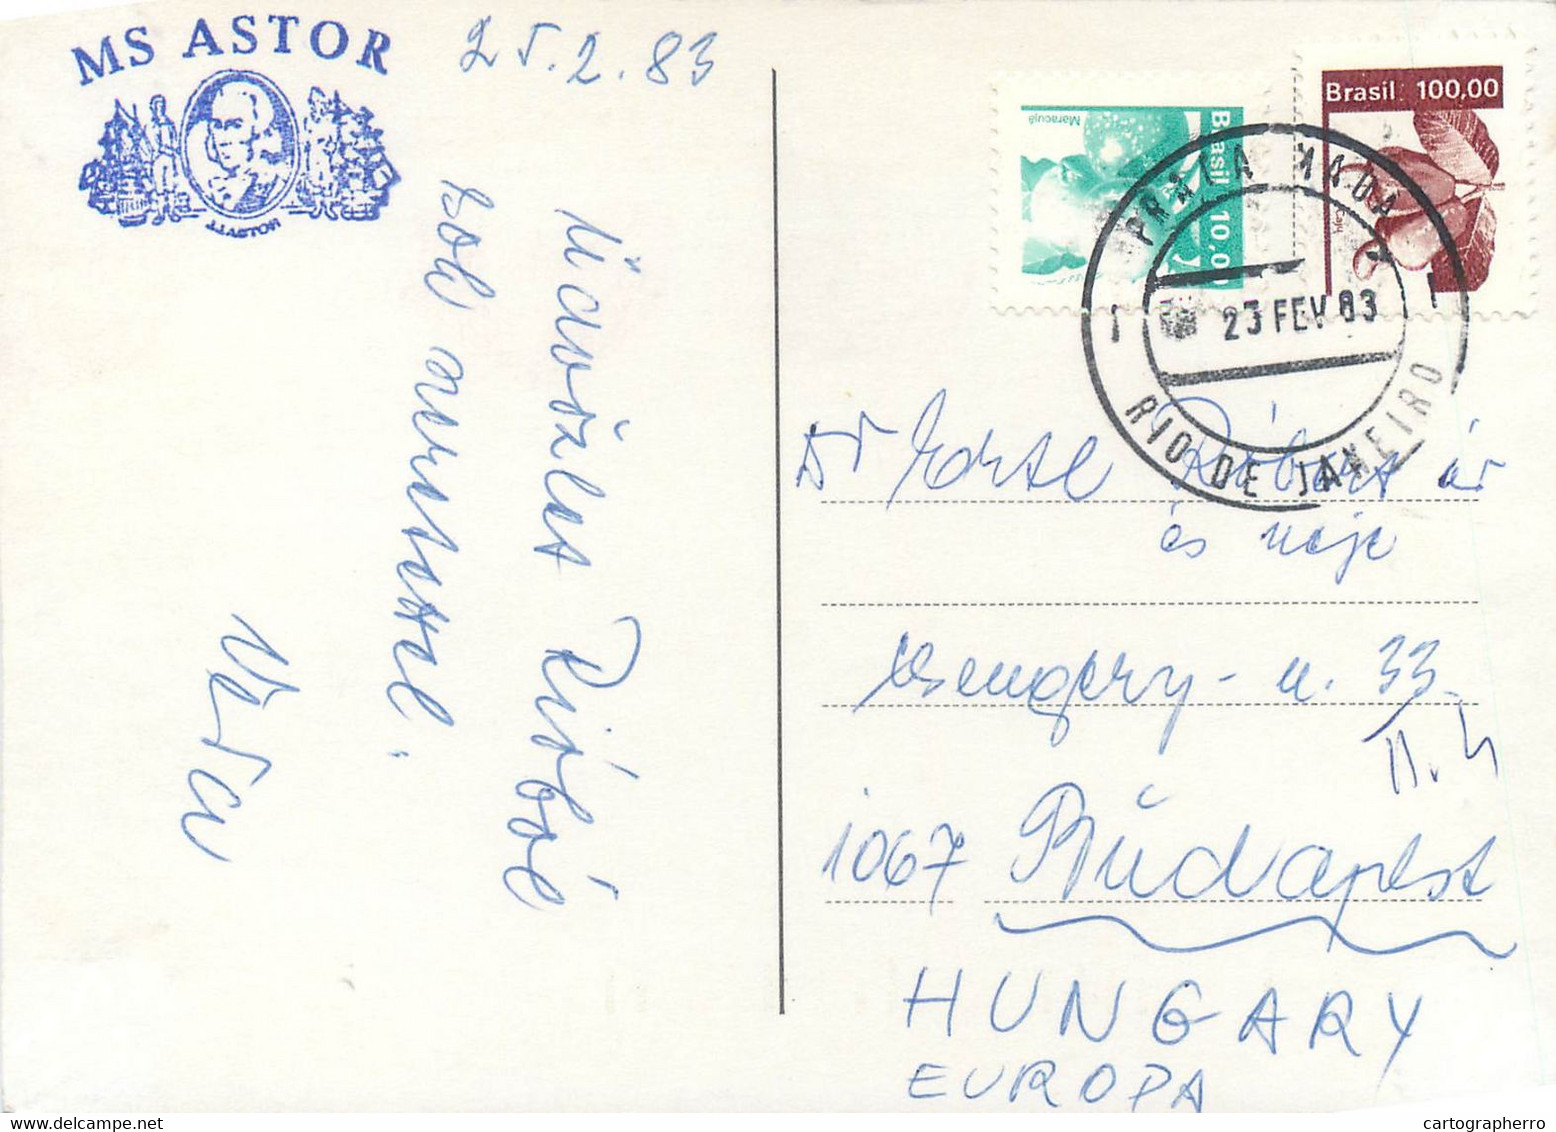 MS ASTOR
J.J.ASTOR
25.2.83
Üdvözlet Rióból
sok szeretettel.
Brasil 10,00
Maracujá
Brasil 100,00
Caju
PRAIA
23 FEV 83
RIO DE JANEIRO
Dr Ertl Róbert úr
és neje
Csengery-u. 33
II. 4
1067 Budapest
HUNGARY
EUROPA
cartographerro
delcampe.net